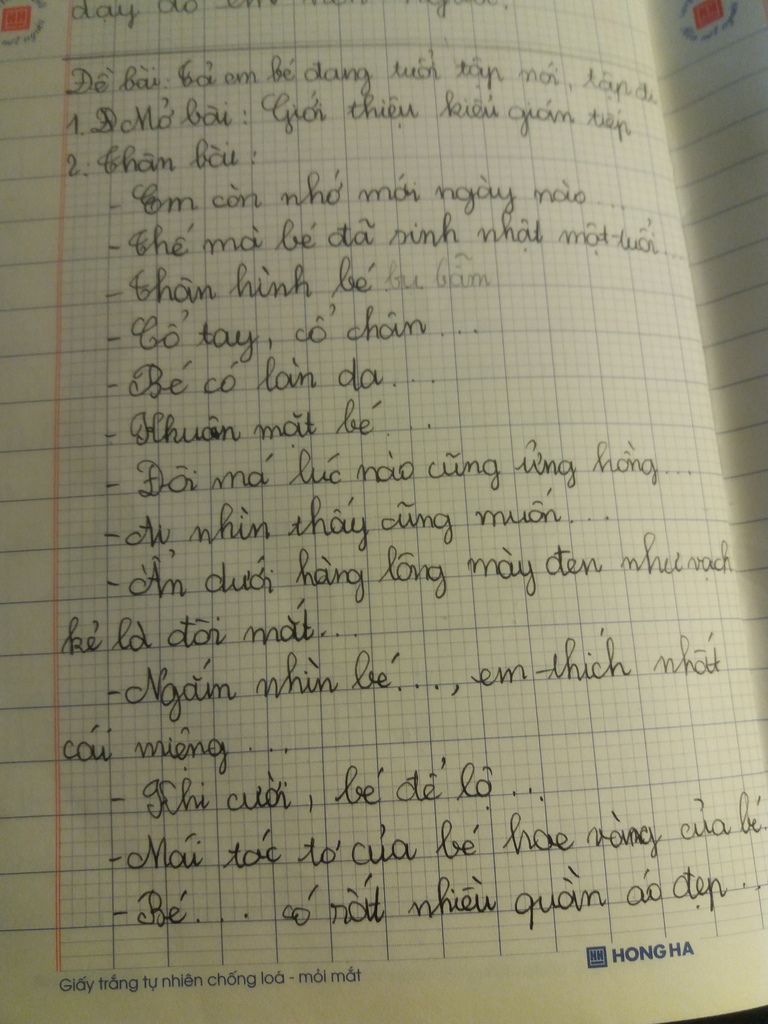 dạy dỗ em nên người.
Đề bài: Tả em bé đang tuổi tập nói, tập đi
1. Mở bài: Giới thiệu kiểu gián tiếp
2. Thân bài:
- Em còn nhớ mới ngày nào...
- Thế mà bé đã sinh nhật một tuổi...
- Thân hình bé bụ bẫm
- Cổ tay, cổ chân....
- Bé có làn da....
- Khuôn mặt bé...
- Đôi má lúc nào cũng ửng hồng...
- Ai nhìn thấy cũng muốn....
- Ẩn dưới hàng lông mày đen như vạch
kẻ là đôi mắt...
- Ngắm nhìn bé...., em thích nhất
cái miệng....
- Khi cười, bé để lộ...
- Mái tóc tơ của bé hoe vàng của bé.
- Bé.... có rất nhiều quần áo đẹp...
HH HONG HA
Giấy trắng tự nhiên chống loá - mỏi mắt